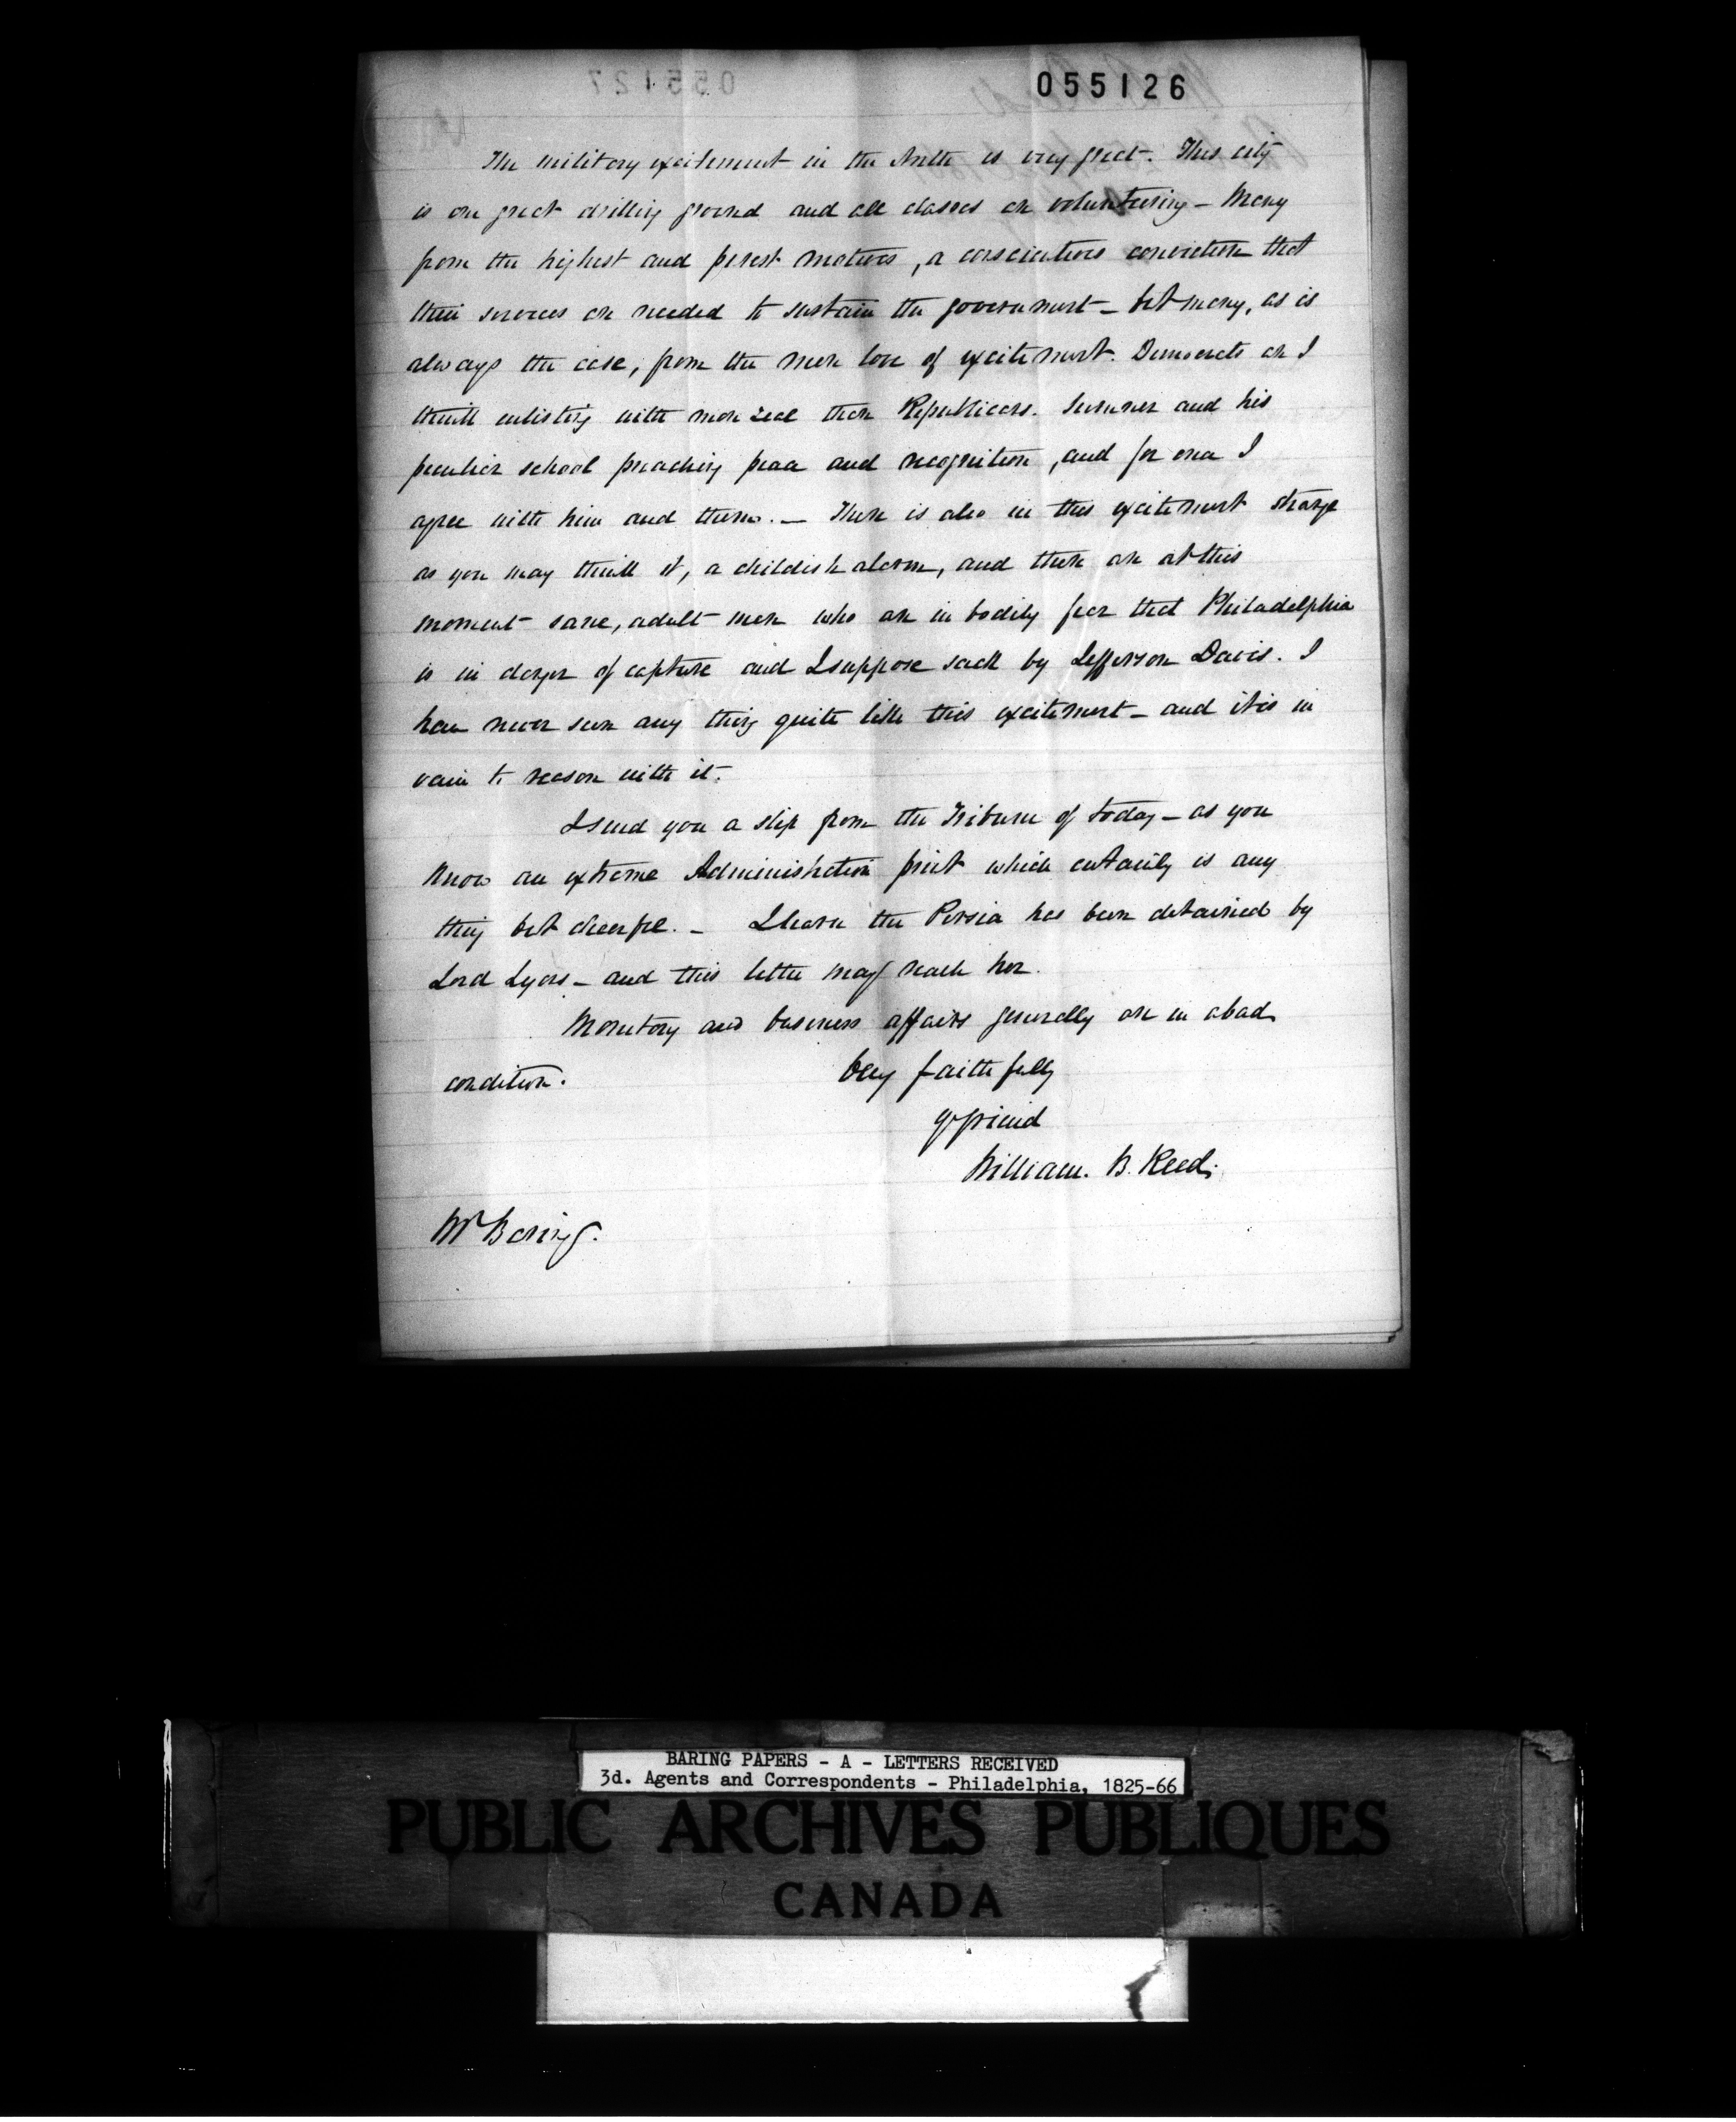 055126
The military excitement in the North is very great. This city
is one great drilling ground and all classes are volunteering – Many
from the highest and purest motives, a conscientious conviction that
their services are needed to sustain the government – but many, as is
always the case, from the mere love of excitement. Democrats are I
think enlisting with more zeal than Republicans. Sumner and his
peculiar school preaching peace and recognition, and for once I
agree with him and them. – There is also in this excitement strange
as you may think it, a childish alarm, and there are at this
moment sane, adult men who are in bodily fear that Philadelphia
is in danger of capture and I suppose sack by Jefferson Davis. I
have never seen any thing quite like this excitement – and it is in
vain to reason with it.
I send you a slip from the Tribune of today – as you
know an extreme Administration print which certainly is any
thing but cheerful. – I learn the Persia has been detained by
Lord Lyons – and this letter may reach her.
Monetary and business affairs generally are in a bad
condition.
Very faithfully
yr friend
William. B. Reed.
Mr Baring.
BARING PAPERS - A - LETTERS RECEIVED
3d. Agents and Correspondents - Philadelphia, 1825-66
PUBLIC ARCHIVES PUBLIQUES
CANADA